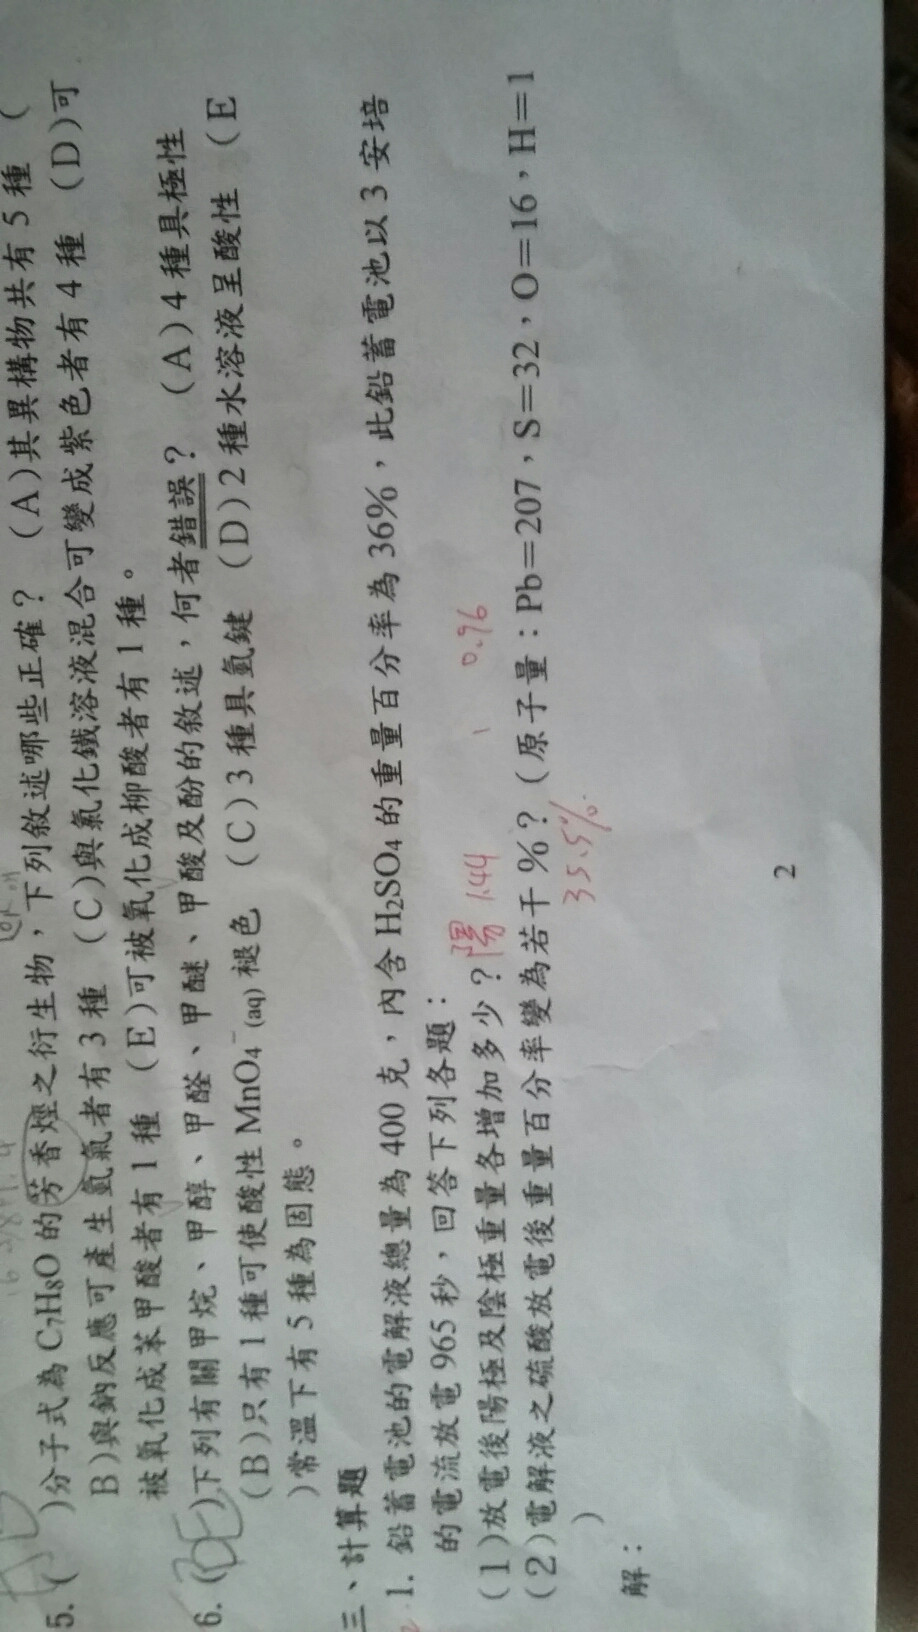 5. ( )分子式為 C7H8O 的芳香烴之衍生物，下列敘述哪些正確？ (A)其異構物共有 5 種 (
B)與鈉反應可產生氫氣者有 3 種 (C)與氯化鐵溶液混合可變成紫色者有 4 種 (D)可
被氧化成苯甲酸者有 1 種 (E)可被氧化成柳酸者有 1 種。
6. (BE)下列有關甲烷、甲醇、甲醛、甲醚、甲酸及酚的敘述，何者錯誤？ (A)4 種具極性
(B)只有 1 種可使酸性 MnO4⁻(aq)褪色 (C)3 種具氫鍵 (D)2 種水溶液呈酸性 (E
)常溫下有 5 種為固態。
三、計算題
1. 鉛蓄電池的電解液總量為 400 克，內含 H2SO4 的重量百分率為 36%，此鉛蓄電池以 3 安培
的電流放電 965 秒，回答下列各題：
(1)放電後陽極及陰極重量各增加多少？ 陽 1.44 , 0.96
(2)電解液之硫酸放電後重量百分率變為若干%？(原子量：Pb=207，S=32，O=16，H=1
)
35.5%.
解：
2